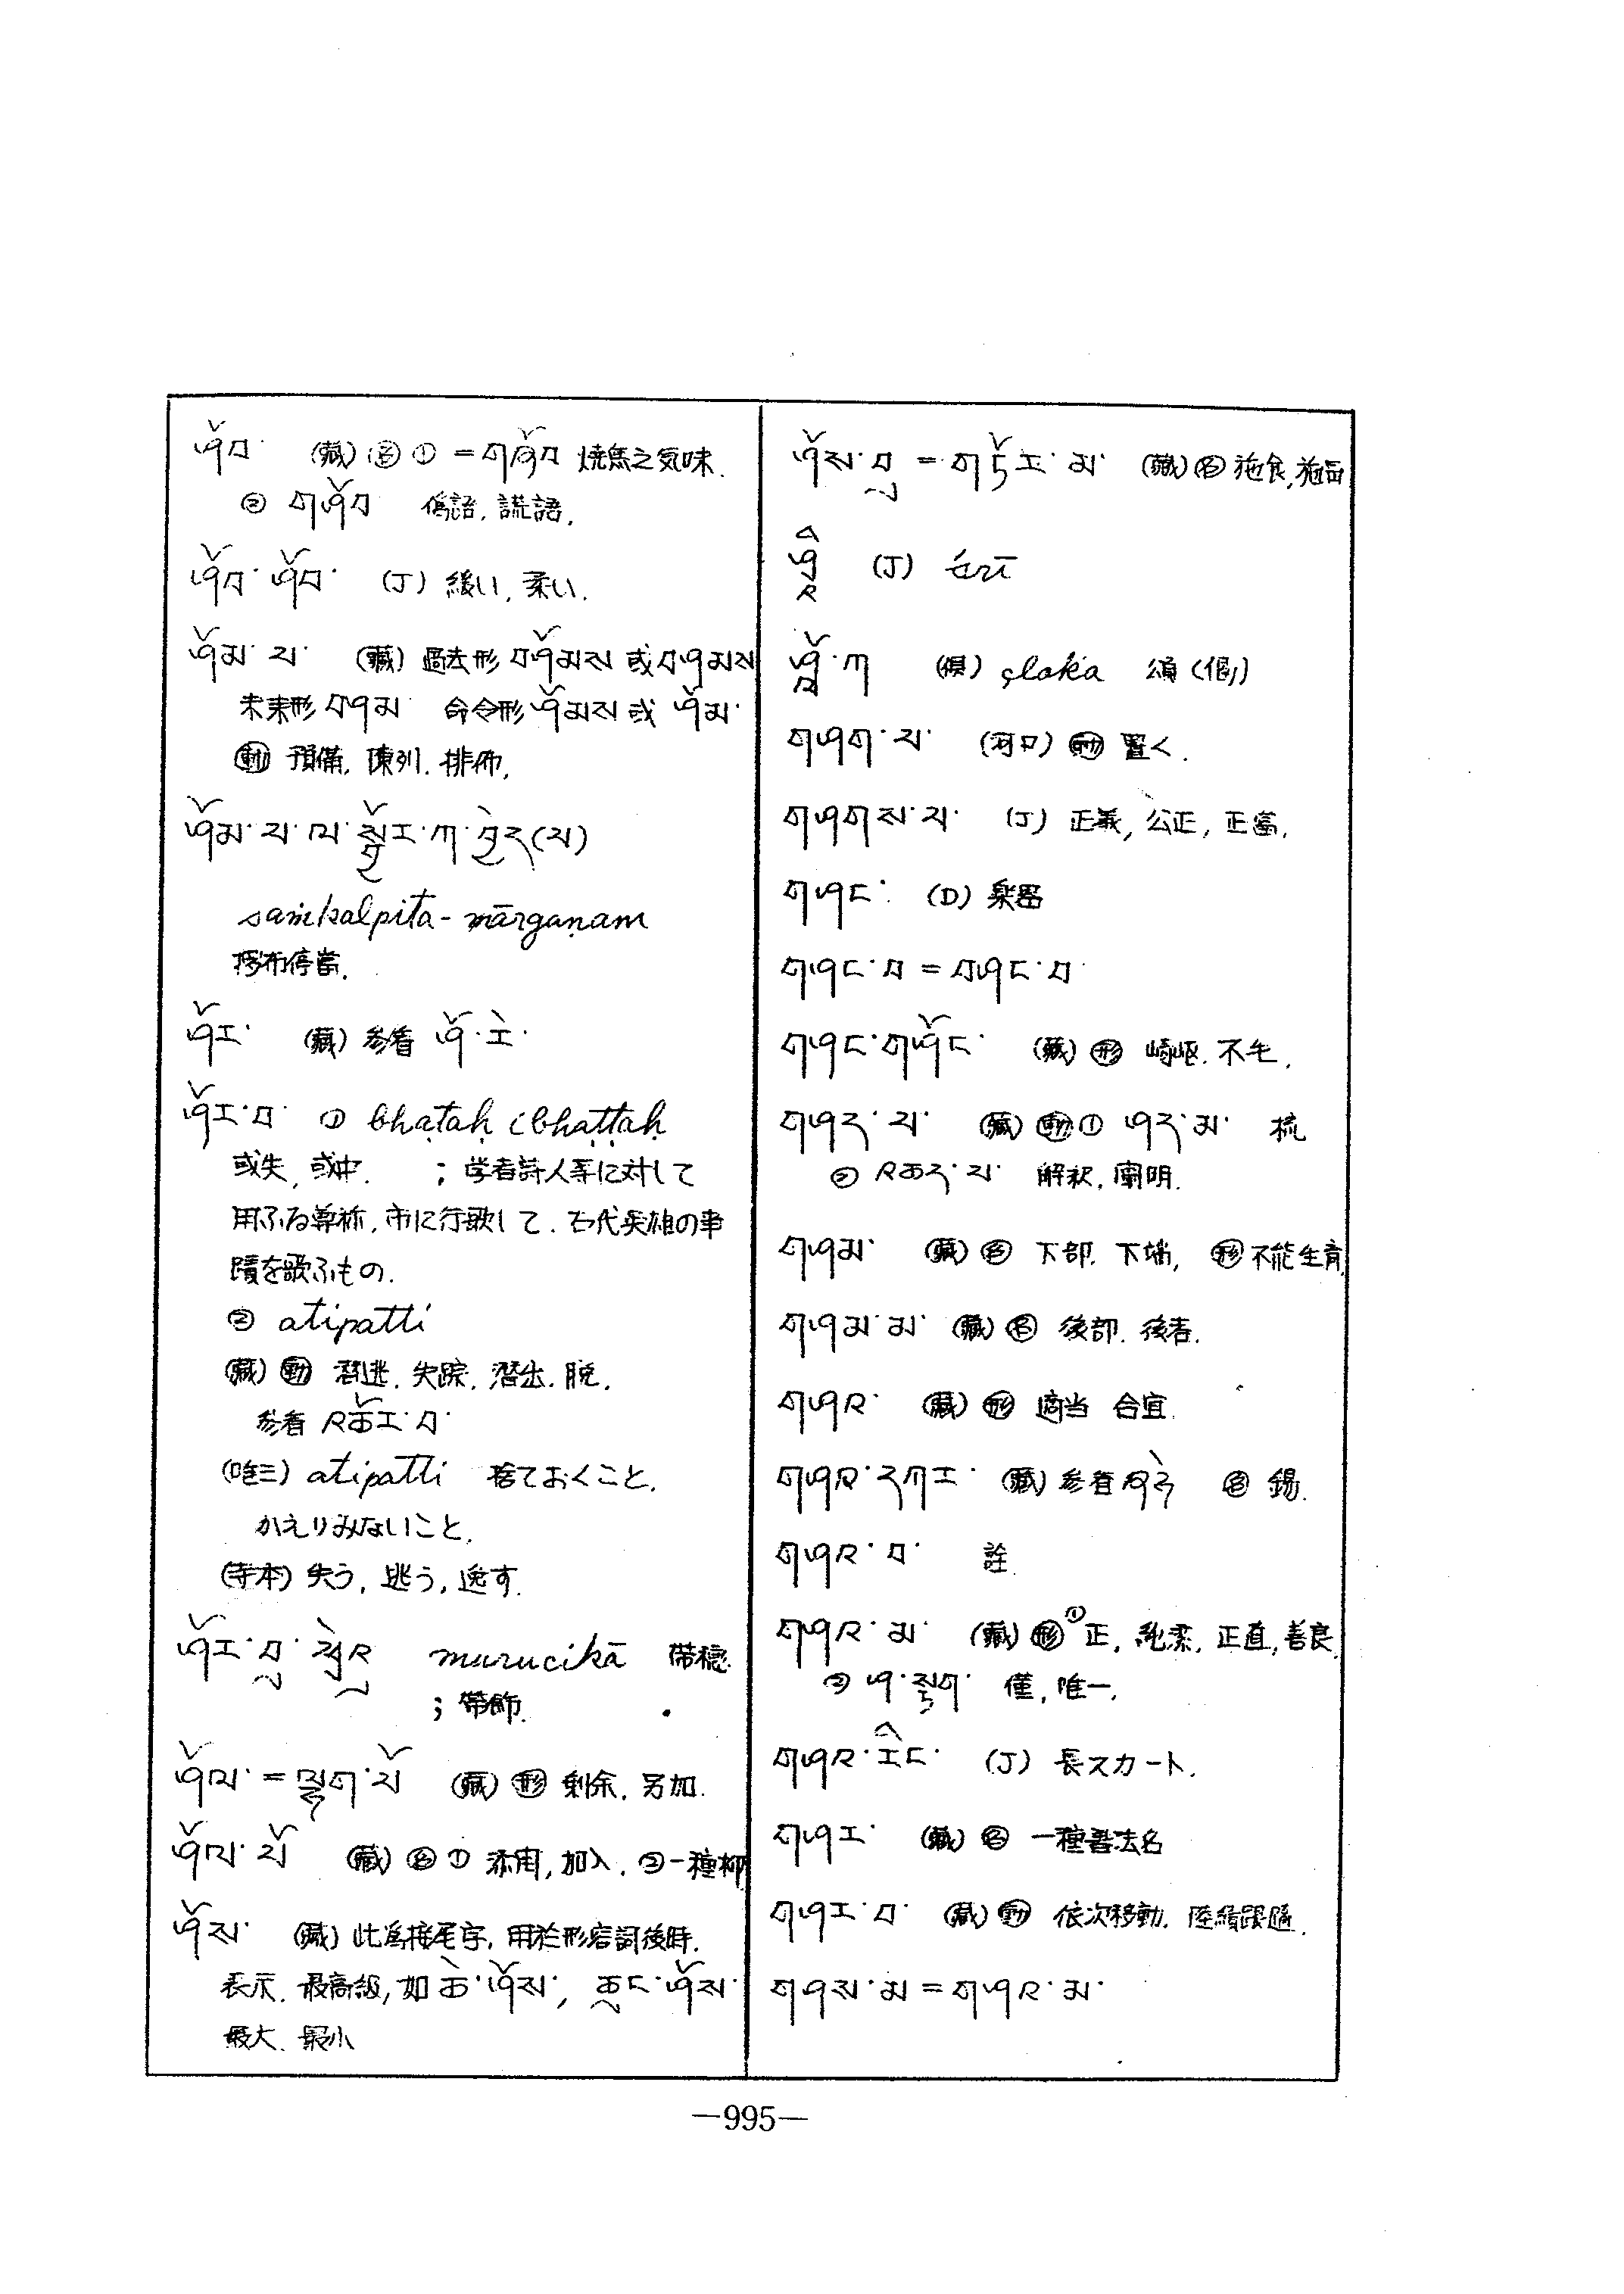 ཤོབ་ (藏) 名 ① = གཞོབ 焼焦之気味.
② གཤོབ 偽語. 謊語.
ཤོབ་ཤོབ་ (J) 緩い, 柔い.
ཤོམ་པ་ (藏) 過去形 བཤོམས 或 བཤམས
未来形 བཤམ 命令形 ཤོམས 或 ཤོམ་
動 預備. 陳列. 排佈.
ཤོམ་པ་ལ་སྦྱོར་ཀ་བྱེད(པ)
saṁkalpita-mārgaṇam
佈停當.
ཤོར་ (藏) 参看 ཤོ་རེ་
ཤོར་བ་ ① bhaṭaḥ (bhaṭṭaḥ
或失, 或中. ; 学者詩人等に対して
用ふる尊称, 市に行歌して. 古代英雄の事
蹟を歌ふもの.
② atipatti
(藏) 動 潜逃. 失踪. 潜出. 脱.
参看 འཆོར་བ་
(唯三) atipatti 捨ておくこと.
かえりみないこと.
(寺本) 失う, 逃う, 逸す.
ཤོར་བུ་ murucikā 帯穂.
; 帯飾.
ཤོལ་ = ལྷག་པོ (藏) 形 剰余. 另加.
ཤོལ་པོ (藏) 名 ① 添用, 加入. ② 一種柳
ཤོས་ (藏) 此為接尾字, 用於形容詞後時.
表示. 最高級, 如 ཆེ་ཤོས་, ཆུང་ཤོས་
最大. 最小
ཤོས་བུ = གཏོར་མ་ (藏) 名 施食, 施品
ཤྲཱི (J) śrī
ཤློ་ཀ (梶) çloka 頌 (偈)
གཤག་པ་ (河口) 動 置く.
གཤགས་པ་ (J) 正義, 公正, 正當.
གཤང་ (D) 楽器
གཤང་བ = བཤང་བ་
གཤང་གཤོང་ (藏) 形 崎嶇. 不毛.
གཤད་པ་ (藏) 動 ① ཤད་མ་ 梳
② འཆད་པ་ 解釈. 闡明.
གཤམ་ (藏) 名 下部. 下端. 形 不能生育.
གཤམ་མ་ (藏) 名 後部. 後者.
གཤའ་ (藏) 形 適当 合宜.
གཤའ་དཀར་ (藏) 参看 名 錫.
གཤའ་བ་ 詮.
གཤའ་མ་ (藏) 形 ① 正, 純潔, 正直, 善良.
② ཤ་སྟག་ 僅, 唯一.
གཤའ་རིང་ (J) 長スカート.
གཤར་ (藏) 名 一種書法名
གཤར་བ་ (藏) 動 依次移動. 陸續跟隨.
གཤས་མ = གཤའ་མ་
—995—